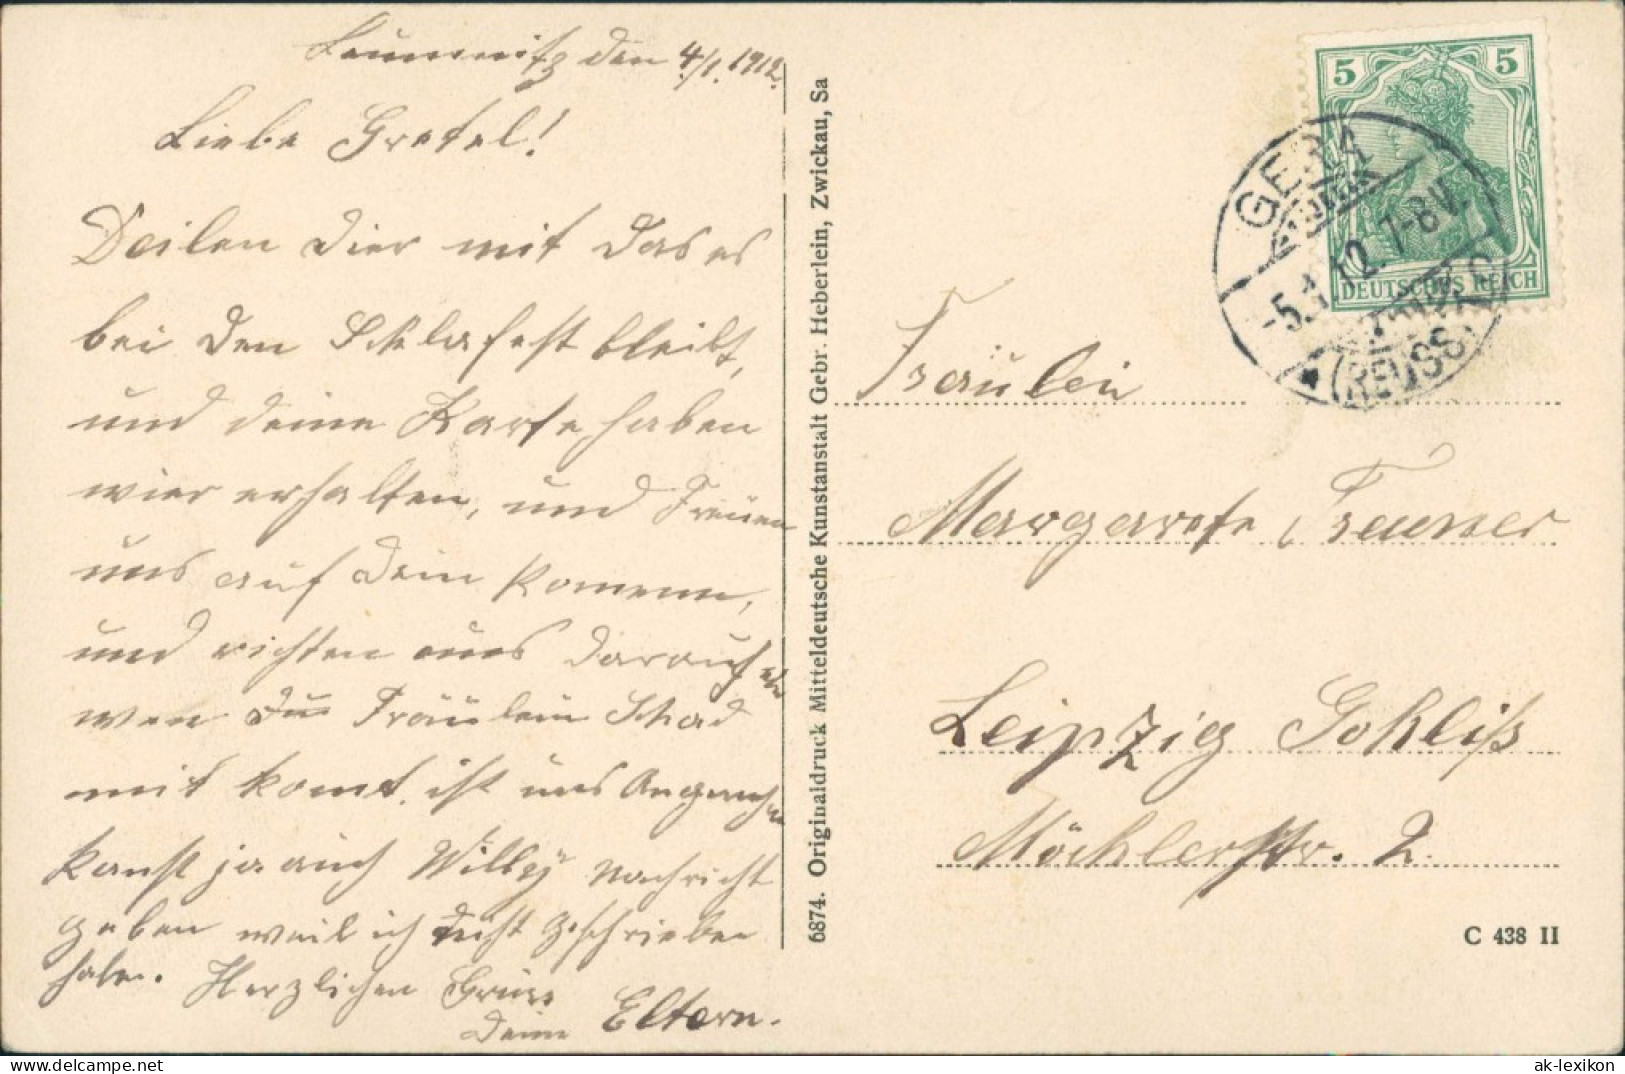 Leumnitz den 4./1. 1912.
Liebe Gretel!
Deilen dier mit das es
bei den Schlafest bleibt,
und deine Karte haben
wier erhalten, und Freuen
uns auf dein Komenn,
und richten uns darauf ein
wen du Fräulein Schad
mit komt. ist uns Angenehm
kanst ja auch Willy nachricht
geben weil ich nicht geschrieben
habe. Herzlichen Grüss
Deine Eltern.
6874. Originaldruck Mitteldeutsche Kunstanstalt Gebr. Heberlein, Zwickau, Sa
5 5
DEUTSCHES REICH
GERA
-5.1.12. 7-8V.
(REUSS)
Fräulein
Margarete
Leipzig Gohliß
Möcklerstr. 2.
C 438 II
ak-lexikon